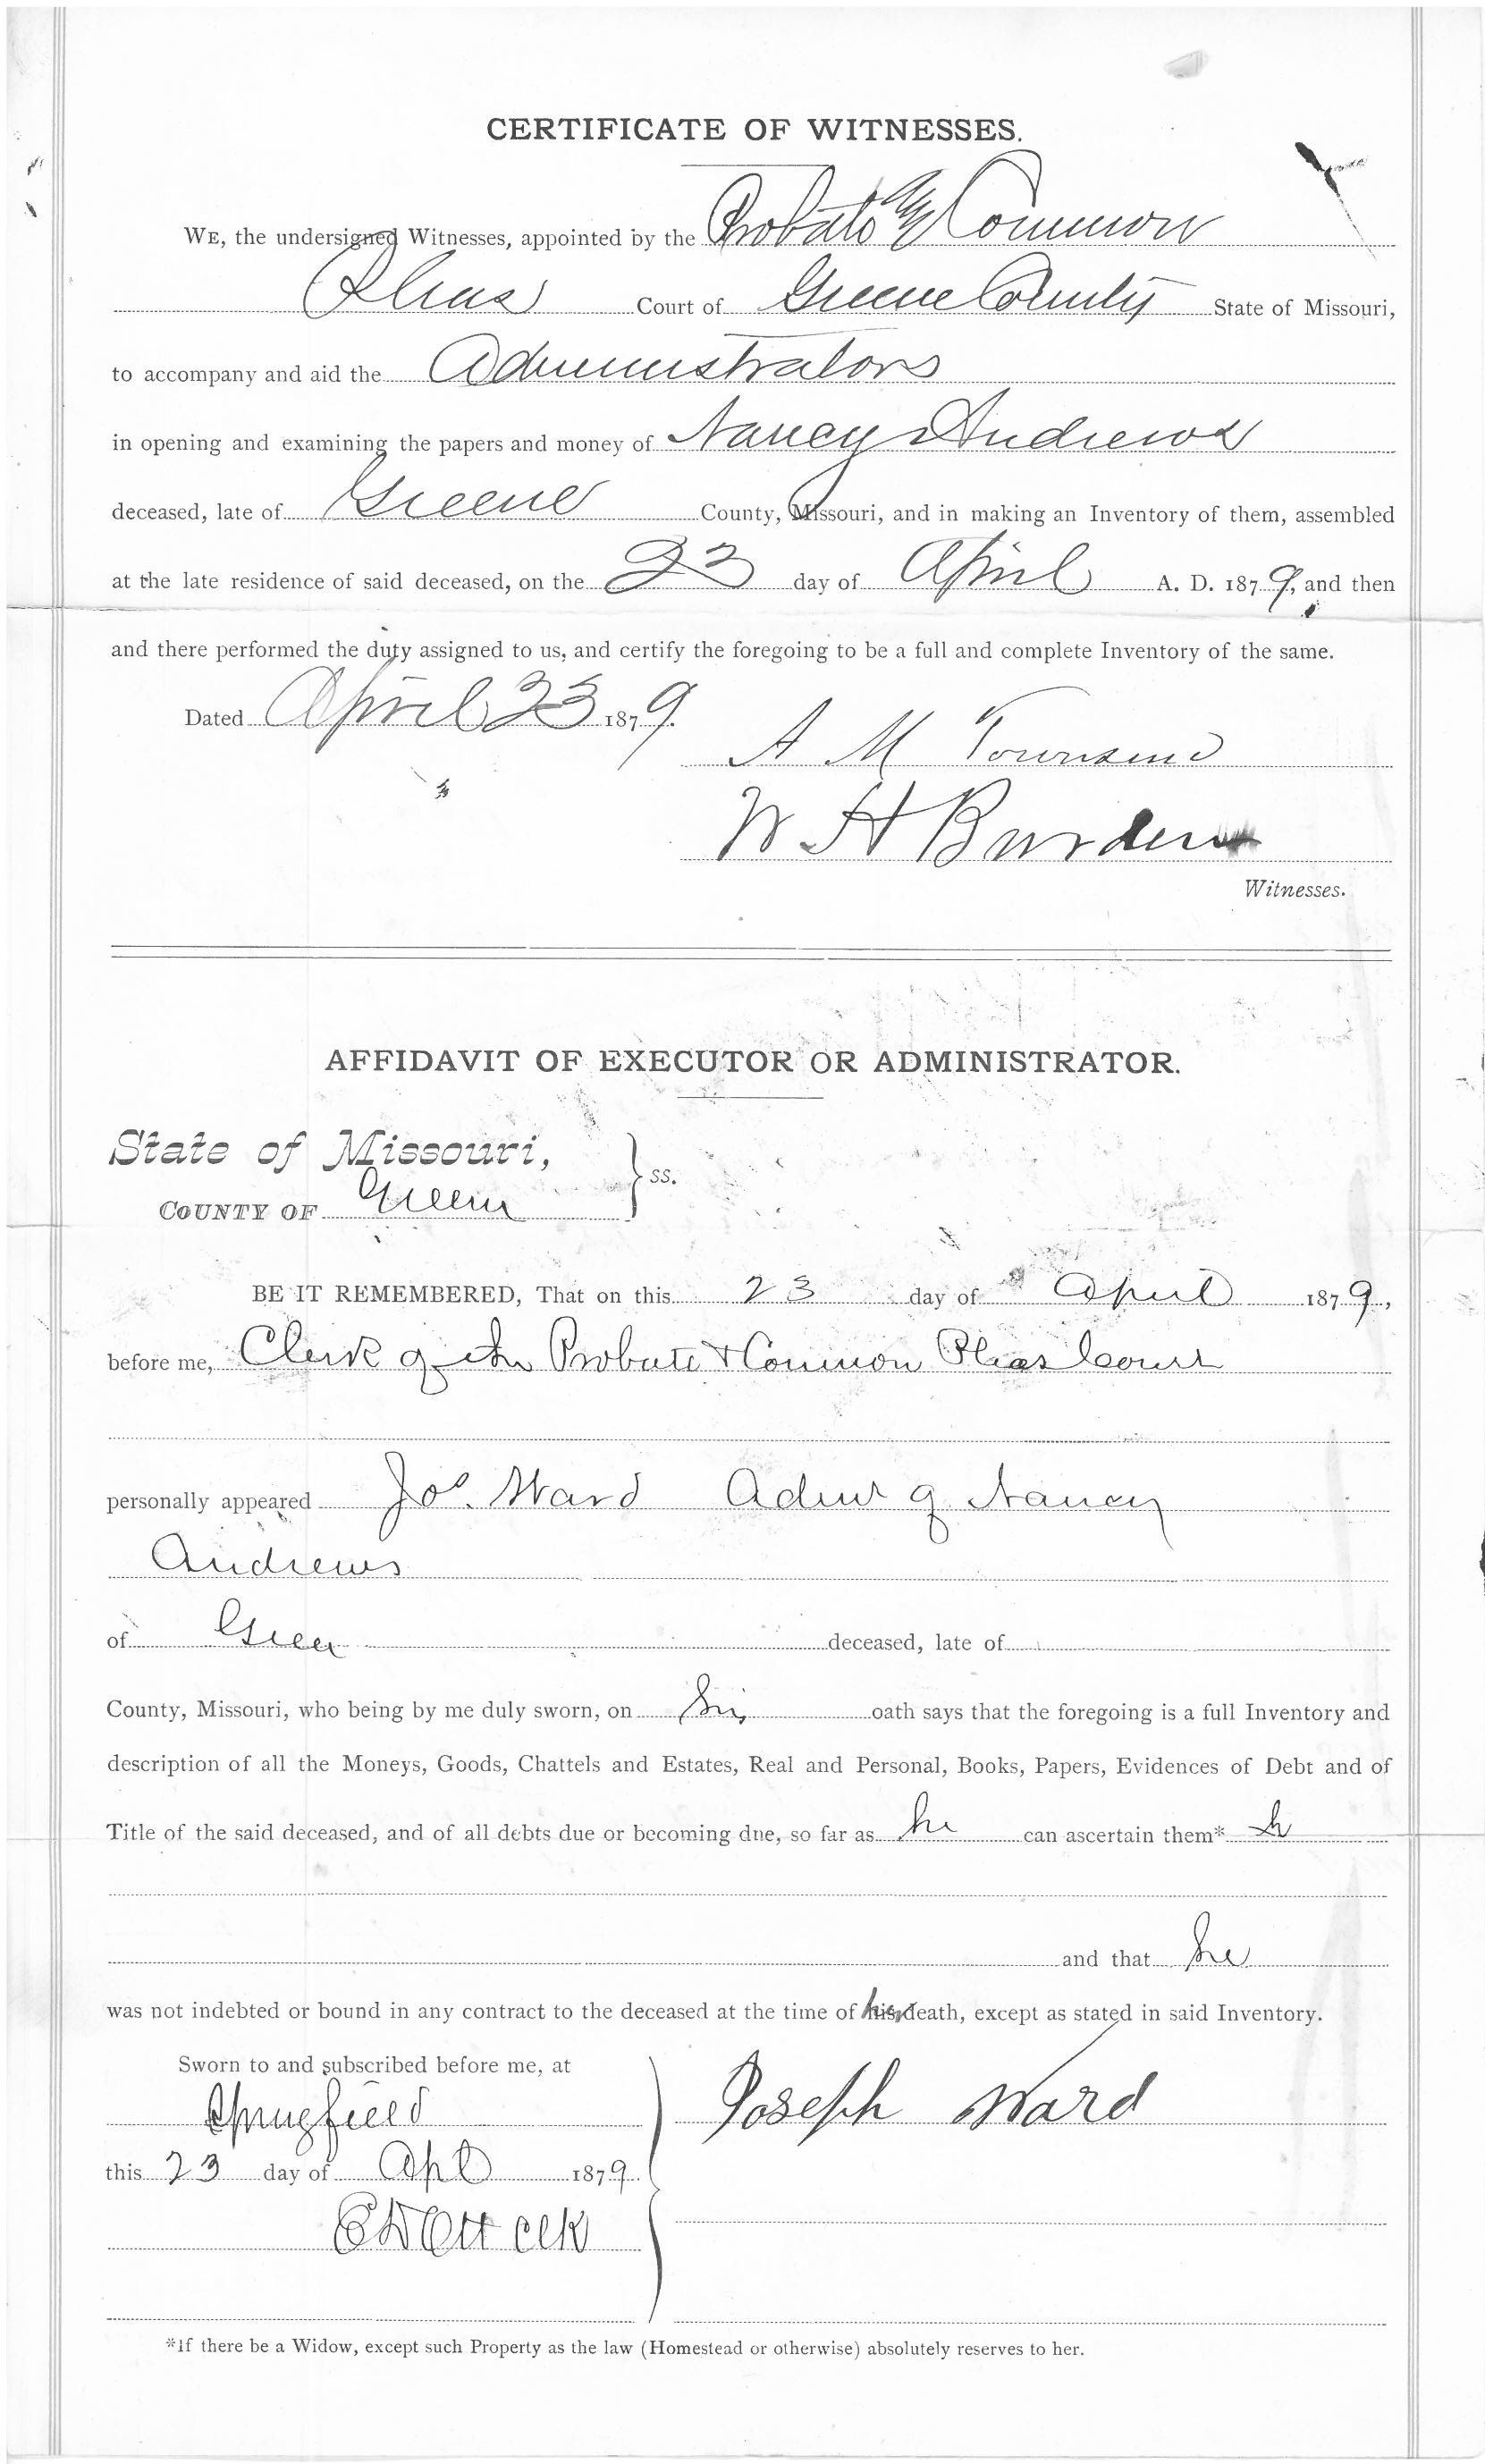 CERTIFICATE OF WITNESSES.
WE, the undersigned Witnesses, appointed by the Probate & Common
Pleas Court of Greene County State of Missouri,
to accompany and aid the Administrators
in opening and examining the papers and money of Nancy Andrews
deceased, late of Greene County, Missouri, and in making an Inventory of them, assembled
at the late residence of said deceased, on the 23 day of April A. D. 1879, and then
and there performed the duty assigned to us, and certify the foregoing to be a full and complete Inventory of the same.
Dated April 23 1879.
A M Townsend
W H Burden
Witnesses.
AFFIDAVIT OF EXECUTOR OR ADMINISTRATOR.
State of Missouri,
COUNTY OF Greene } ss.
BE IT REMEMBERED, That on this 23 day of April 1879,
before me, Clerk of the Probate & Common Pleas Court
personally appeared Jos. Ward Admr of Nancy
Andrews
of Green deceased, late of
County, Missouri, who being by me duly sworn, on his oath says that the foregoing is a full Inventory and
description of all the Moneys, Goods, Chattels and Estates, Real and Personal, Books, Papers, Evidences of Debt and of
Title of the said deceased, and of all debts due or becoming due, so far as he can ascertain them*
and that he
was not indebted or bound in any contract to the deceased at the time of her death, except as stated in said Inventory.
Sworn to and subscribed before me, at
Springfield
Joseph Ward
this 23 day of Apl 1879.
E D Ott Clk
*If there be a Widow, except such Property as the law (Homestead or otherwise) absolutely reserves to her.